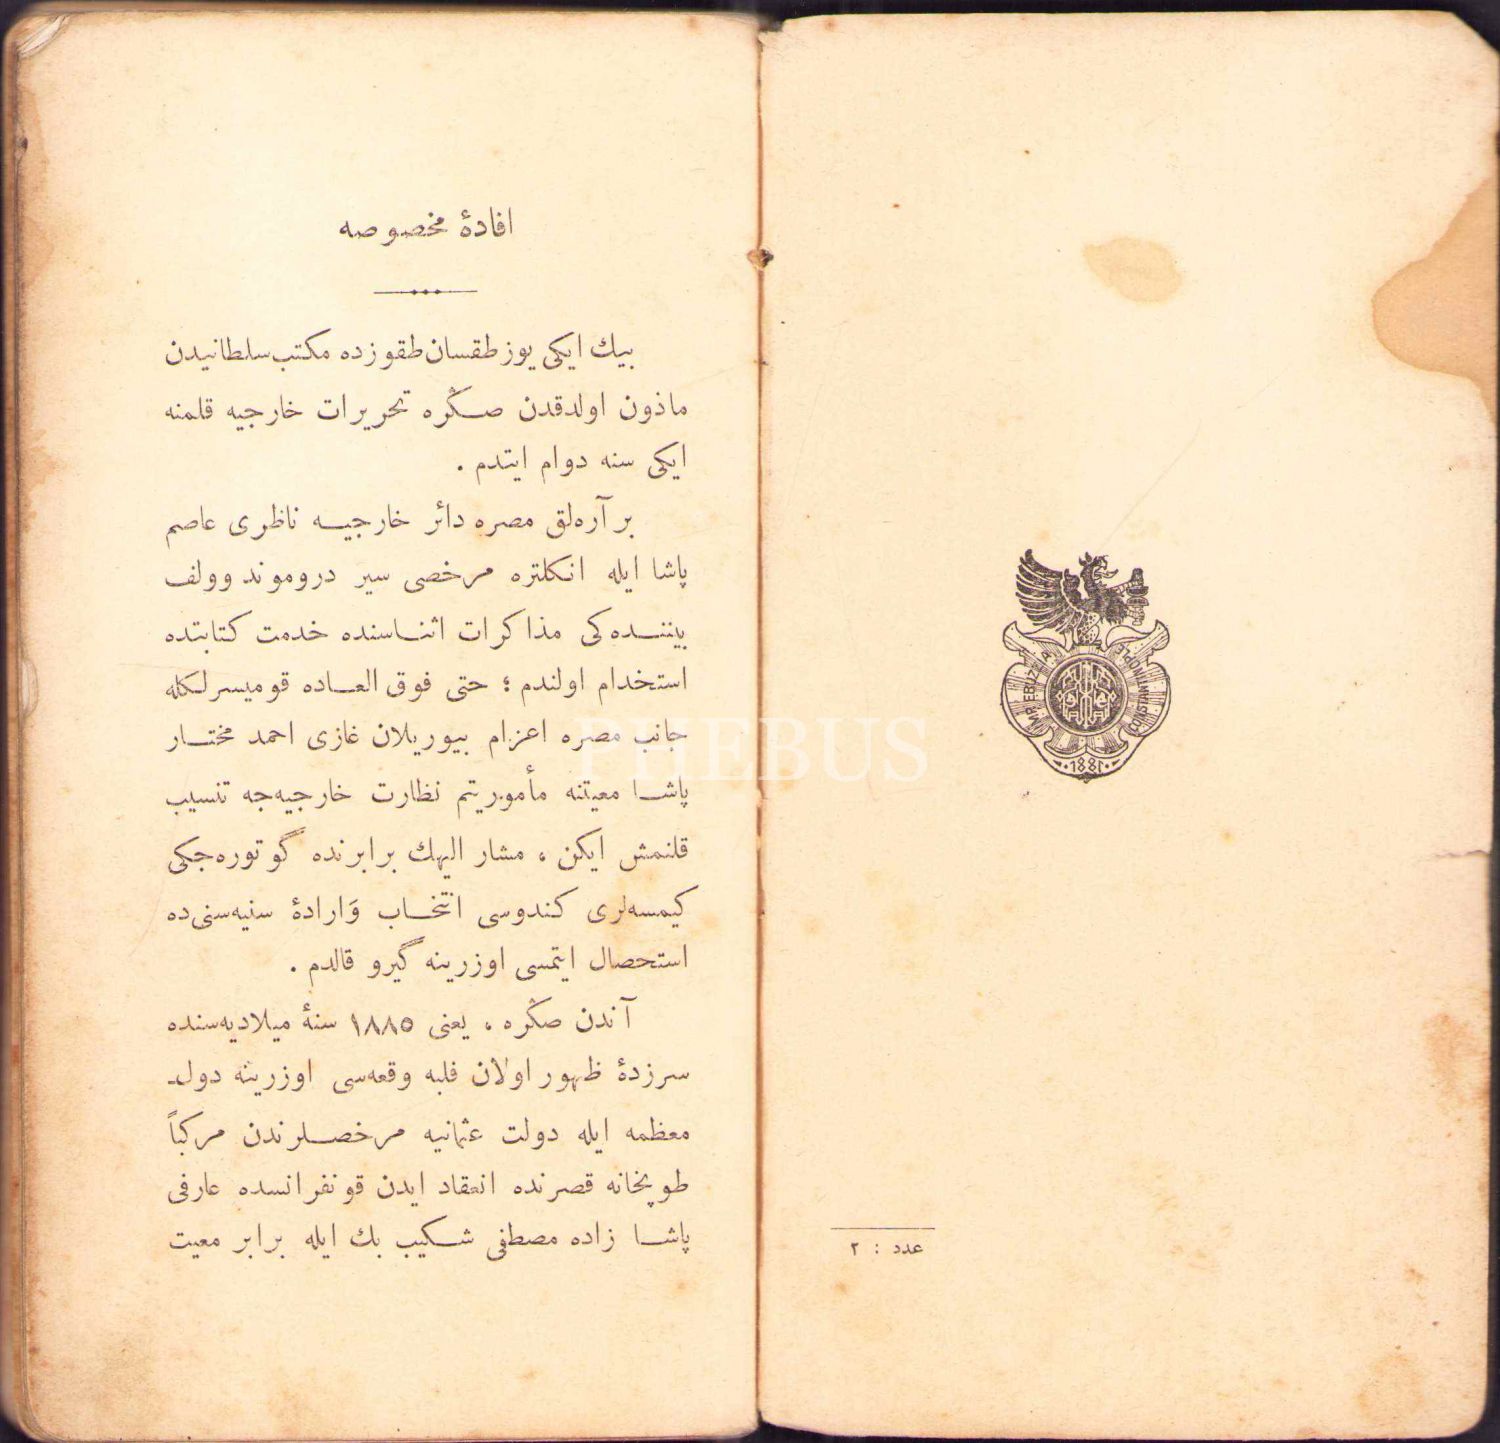 IMP. EBUZZIA
CONSTANTINOPLE
1881
عدد : ٢
افادهٔ مخصوصه
بيك ايكى يوز طقسان طقوزده مكتب سلطانيدن
ماذون اولدقدن صڭره تحريرات خارجيه قلمنه
ايكى سنه دوام ايتدم .
بر آره‌لق مصره دائر خارجيه ناظرى عاصم
پاشا ايله انكلتره مرخصى سير دروموند وولف
بيننده‌كى مذاكرات اثناسنده خدمت كتابتده
استخدام اولندم ؛ حتى فوق العاده قوميسرلكله
جانب مصره اعزام بيوريلان غازى احمد مختار
پاشا معيتنه مأموريتم نظارت خارجيه‌جه تنسيب
قلنمش ايكن ، مشار اليهك برابرنده گوتوره‌جكى
كيمسه‌لرى كندوسى انتخاب وَارادهٔ سنيه‌سنى‌ده
استحصال ايتمسى اوزرينه گيرو قالدم .
آندن صڭره ، يعنى ١٨٨٥ سنهٔ ميلاديه‌سنده
سرزدهٔ ظهور اولان فلبه وقعه‌سى اوزرينه دول‌ـ
معظمه ايله دولت عثمانيه مرخصلرندن مركباً
طوپخانه قصرنده انعقاد ايدن قونفرانسده عارفى
پاشا زاده مصطفى شكيب بك ايله برابر معيت
PHEBUS